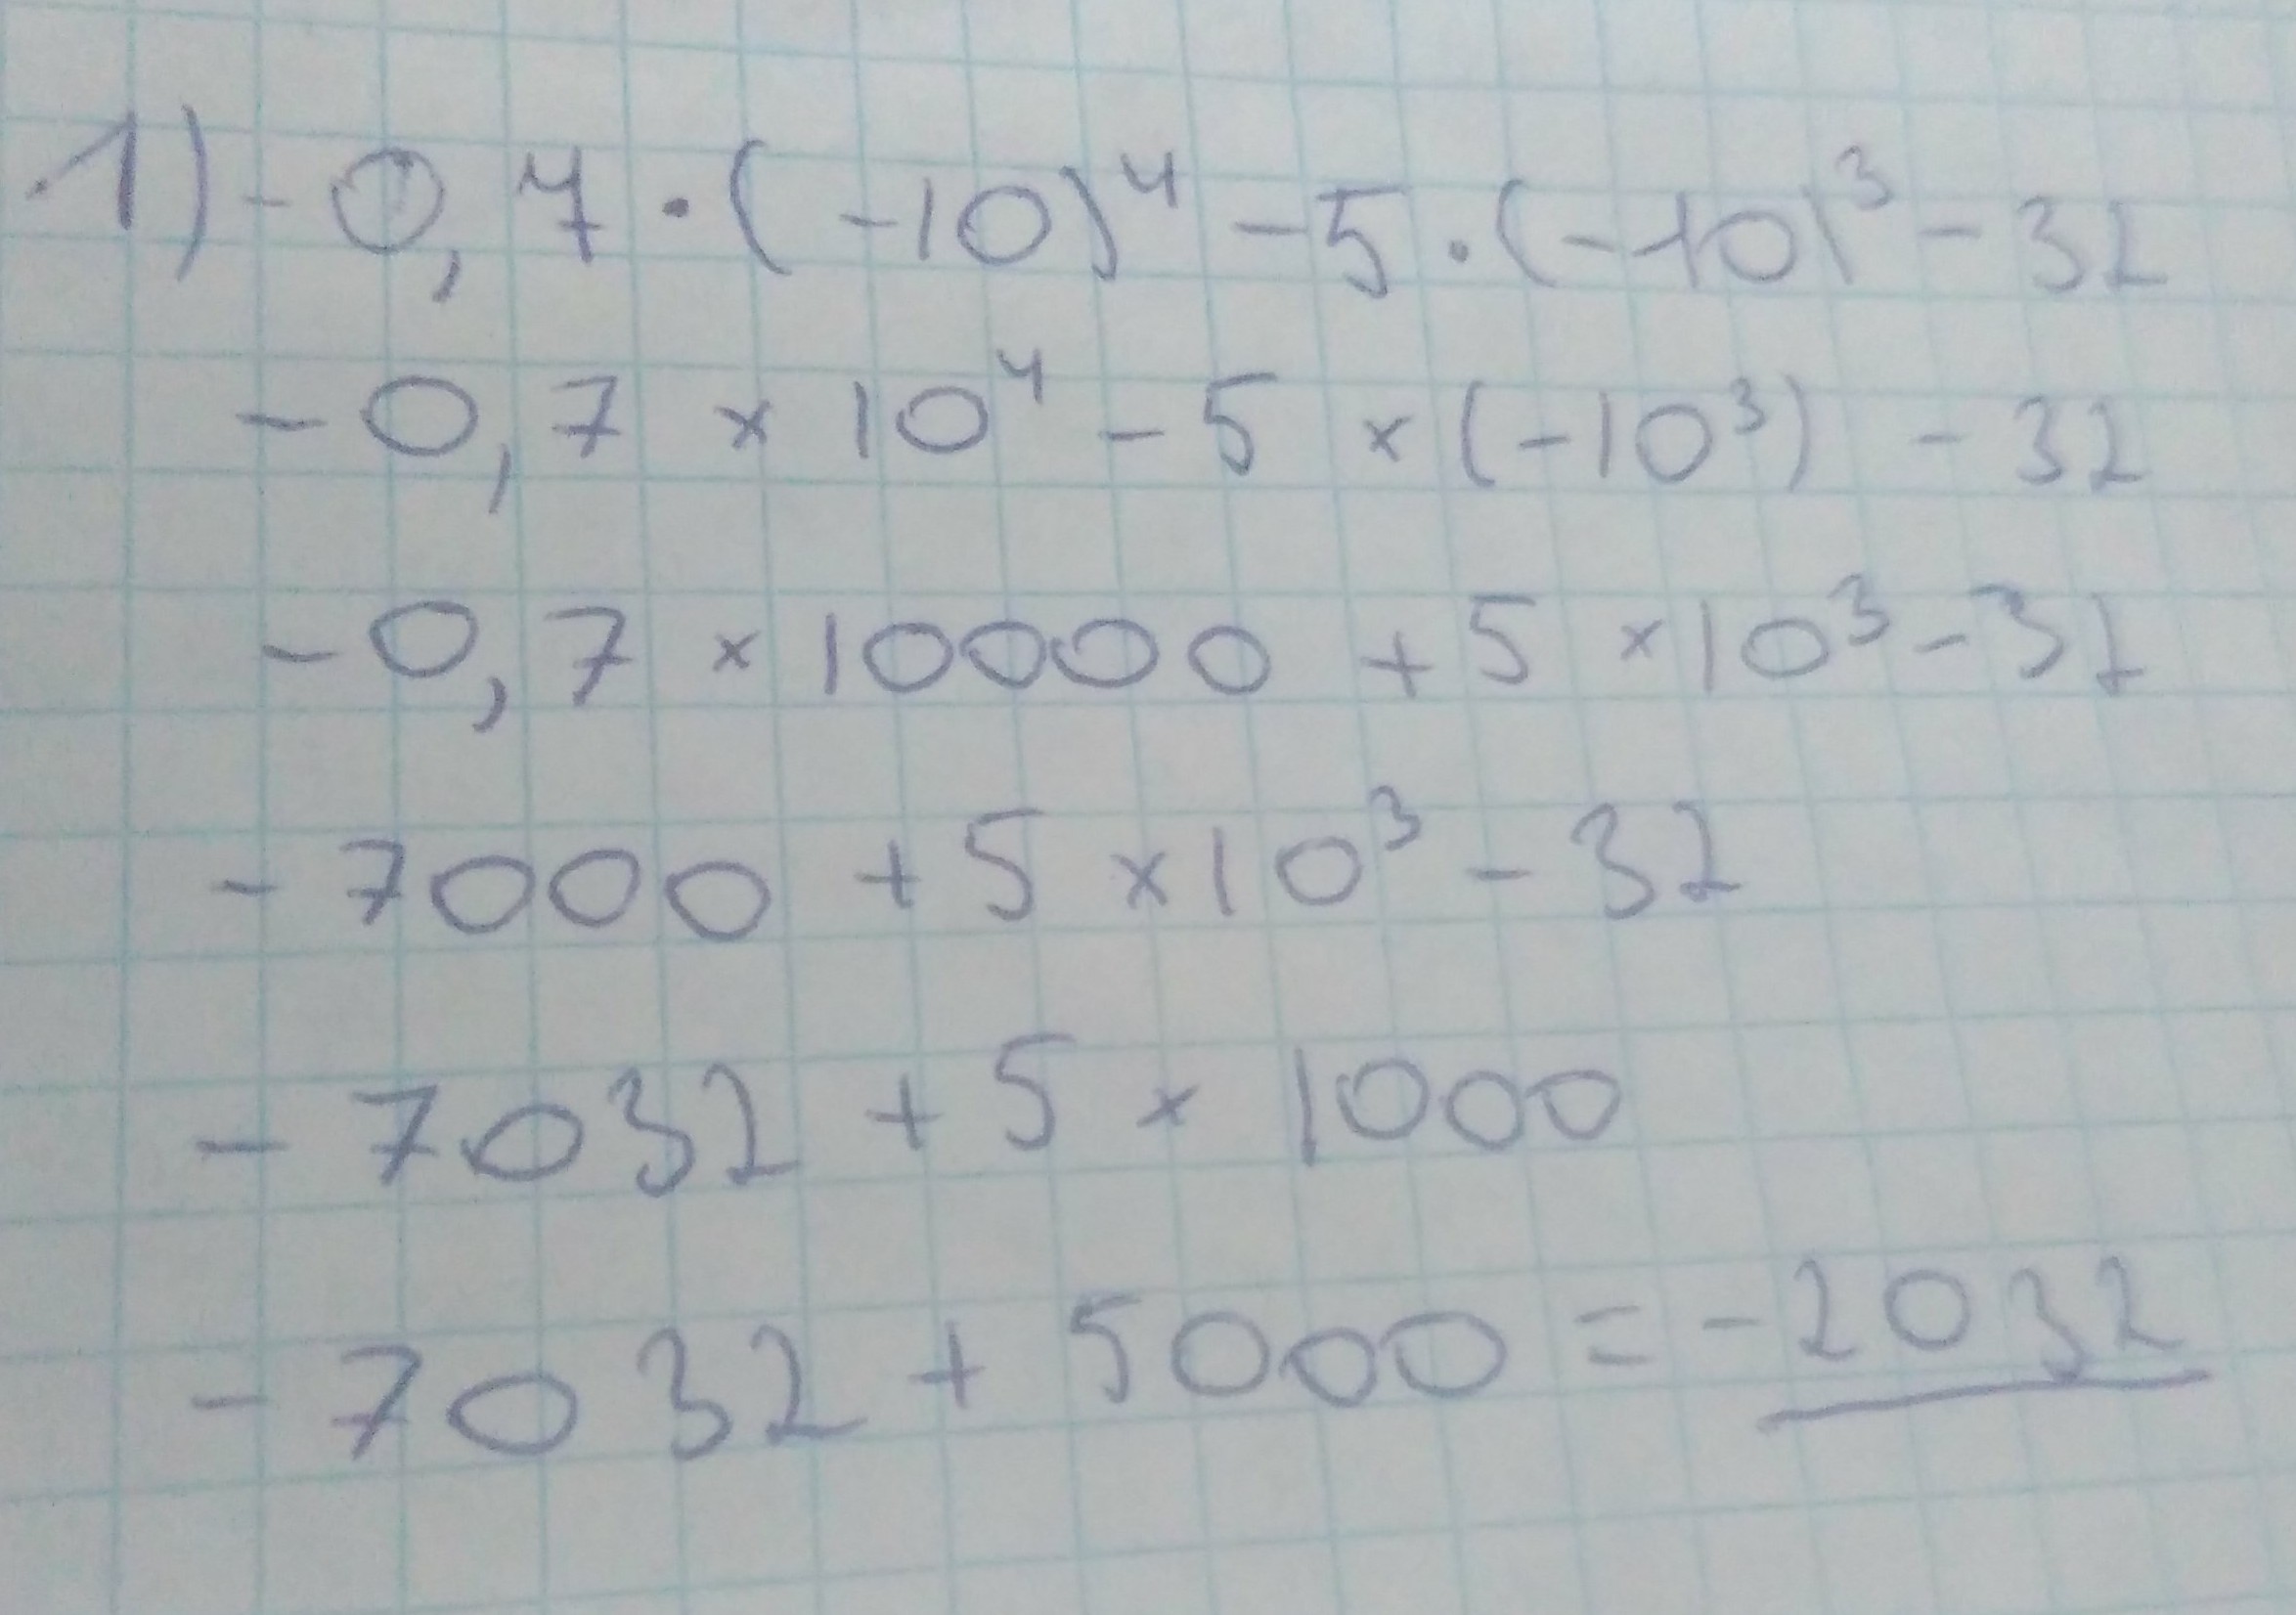 1) -0,7 · (-10)⁴ - 5 · (-10)³ - 32
-0,7 × 10⁴ - 5 × (-10³) - 32
-0,7 × 10000 + 5 × 10³ - 32
-7000 + 5 × 10³ - 32
-7032 + 5 × 1000
-7032 + 5000 = -2032